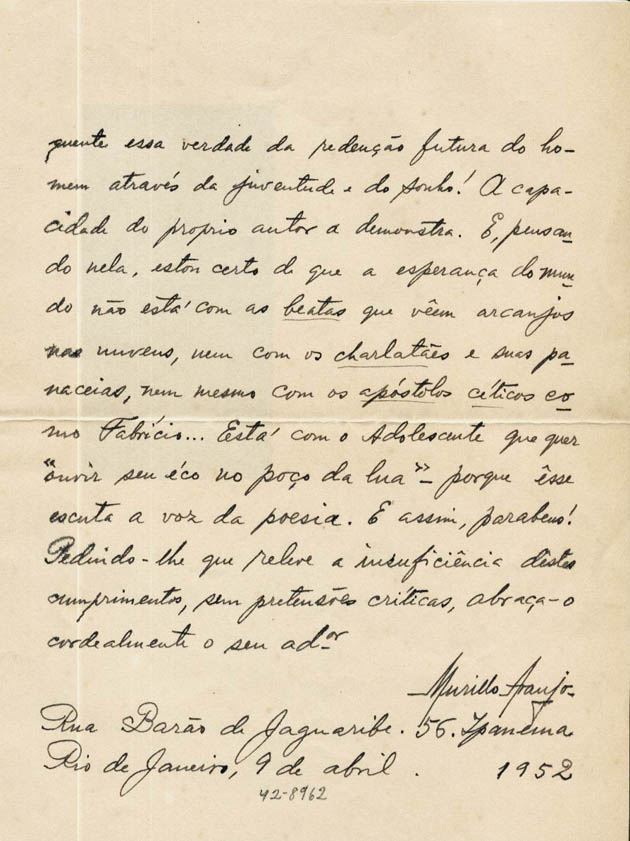 quente essa verdade da redenção futura do ho-
mem através da juventude e do sonho! A capa-
cidade do proprio autor a demonstra. E, pensan-
do nela, estou certo de que a esperança do mun-
do não está com as beatas que vêem arcanjos
nas nuvens, nem com os charlatães e suas pa-
naceias, nem mesmo com os apóstolos céticos co-
mo Fabrício... Está com o Adolescente que quer
"ouvir seu éco no poço da lua" - porque êsse
escuta a voz da poesia. E assim, parabens!
Pedindo-lhe que releve a insuficiência dêstes
cumprimentos, sem pretensões criticas, abraça-o
cordealmente o seu ad.or
Murillo Araujo-
Rua Barão de Jaguaribe. 56. Ipanema
Rio de Janeiro, 9 de abril. 1952
42-8962